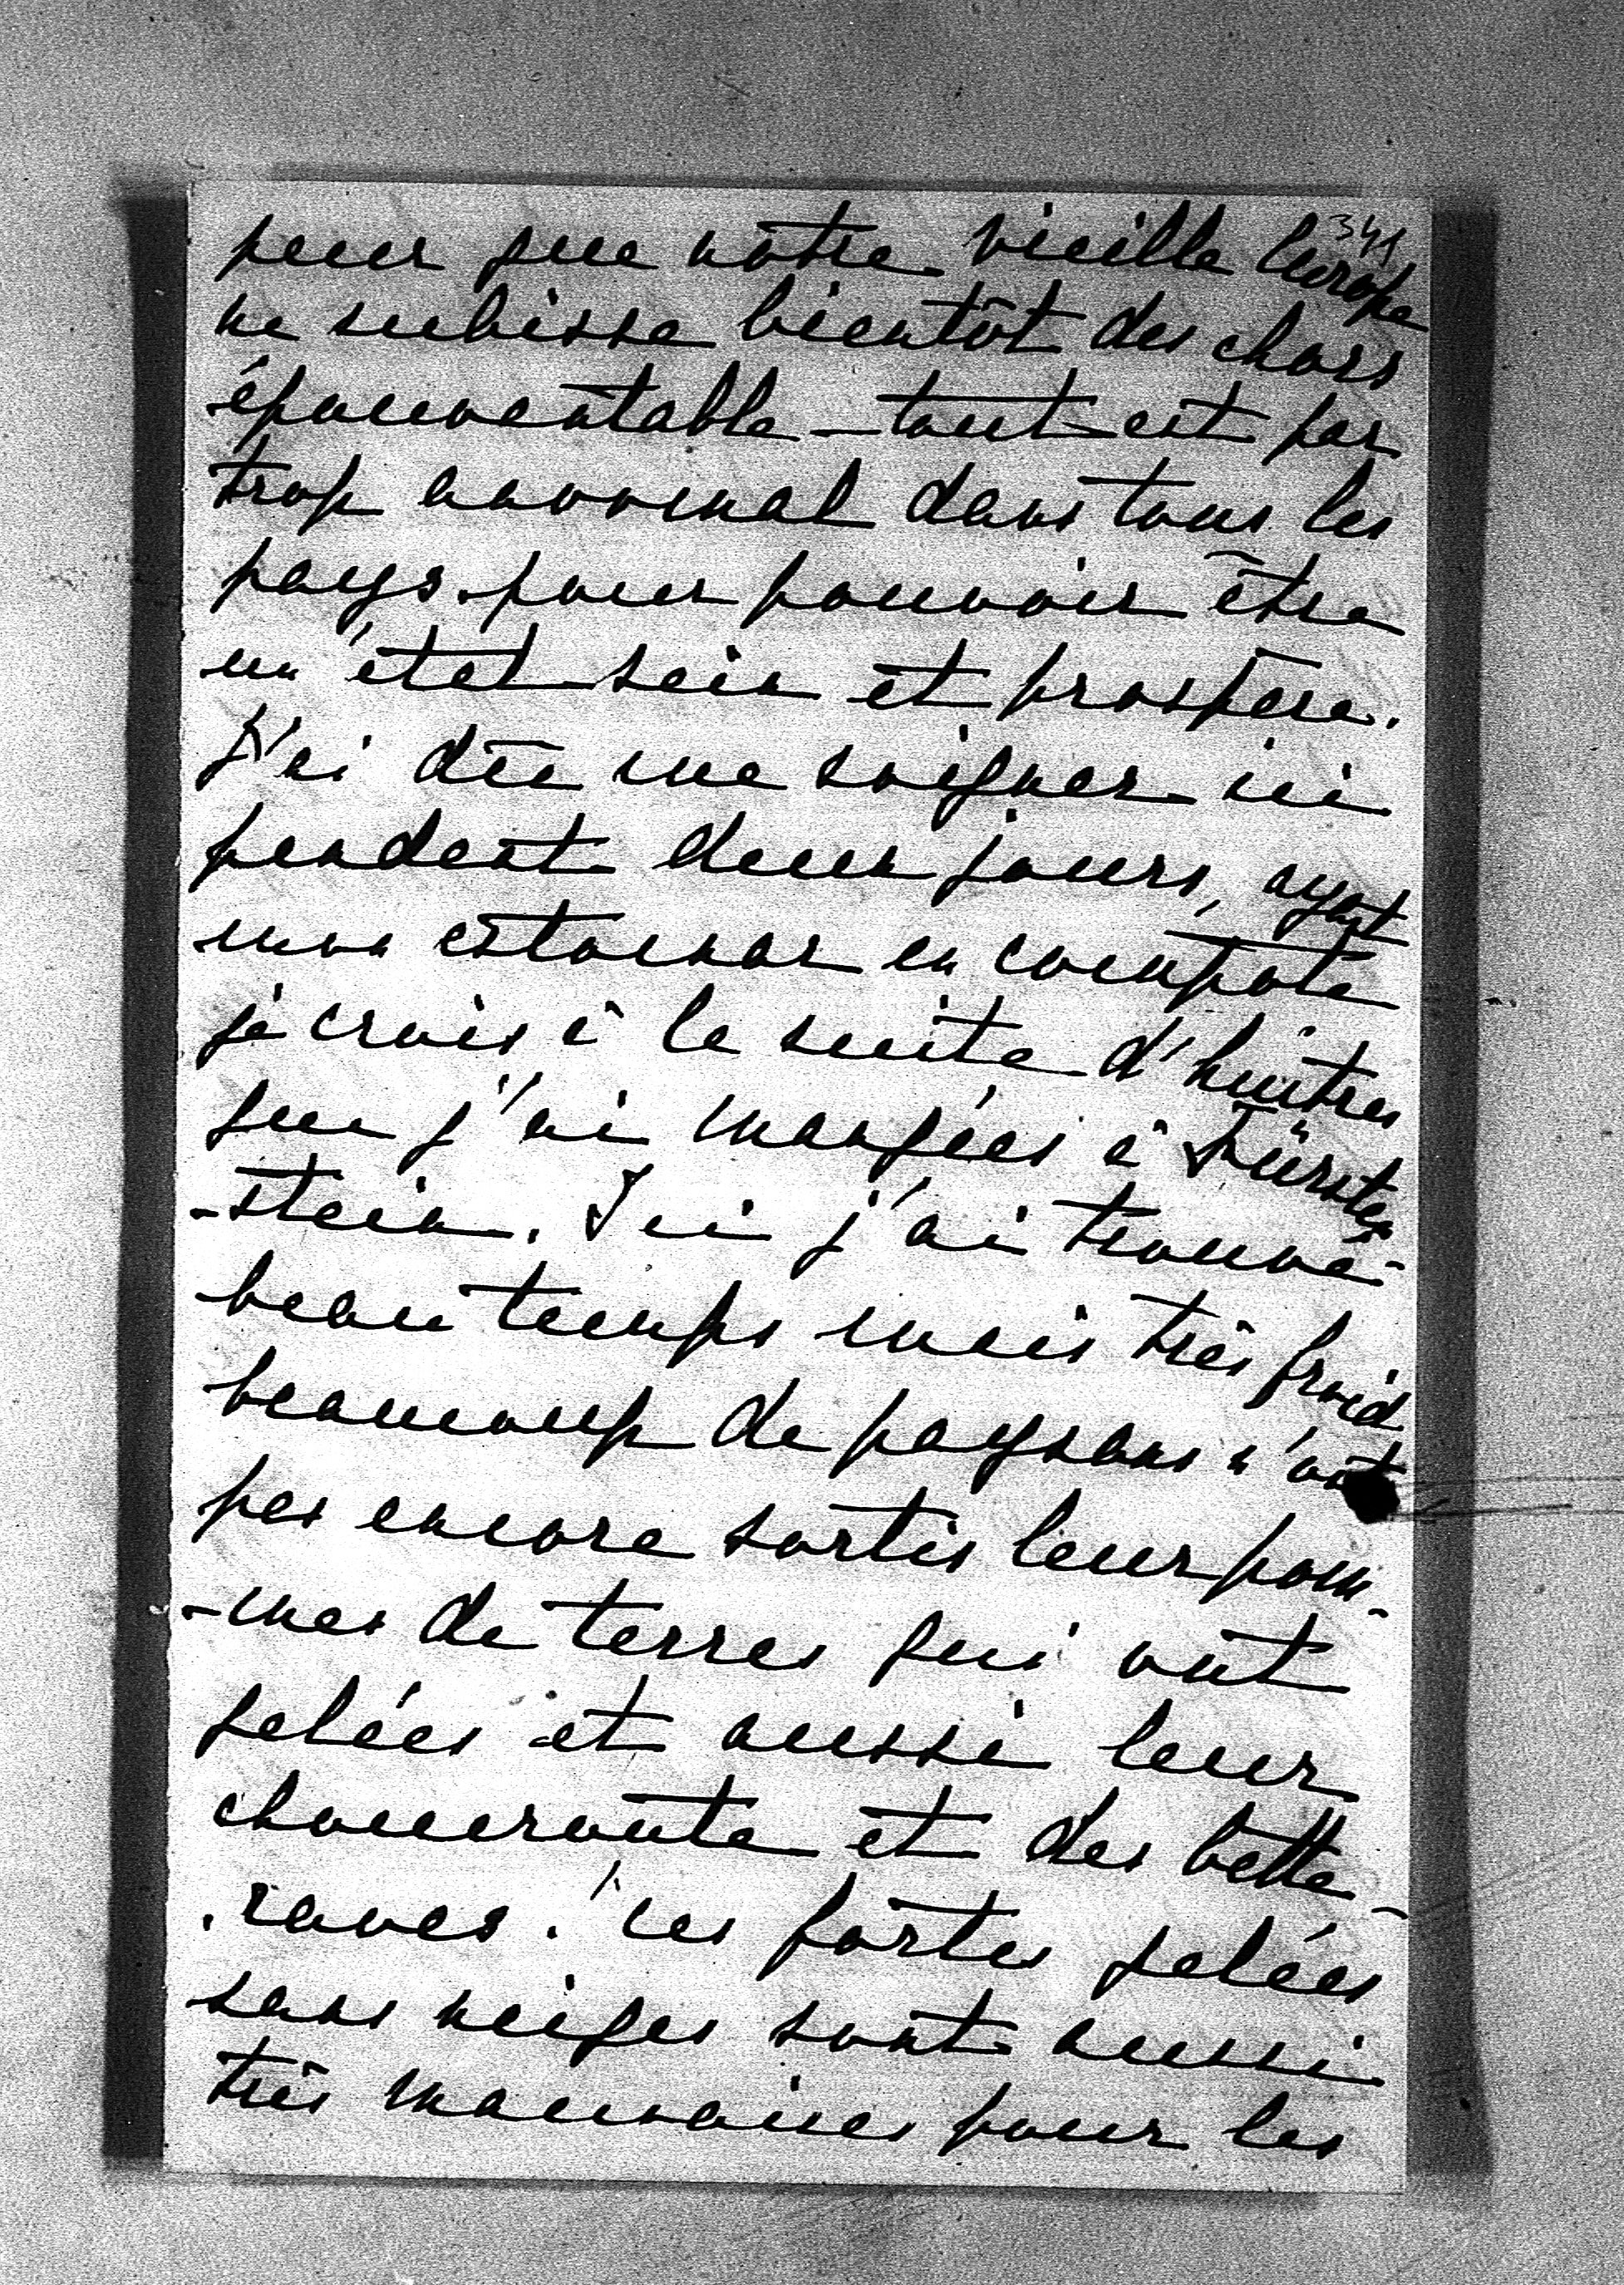 341
peur que notre vieille Europe
ne subisse bientôt des chocs
épouventable - tout est par
trop anormal dans tous les
pays pour pouvoir être
un état sein et prospère.
J'ai dû me soigner ici
pendent deux jours, ayant
mon estomac en compote
je crois à la suite d'huitres
que j'ai mangées à Fürsten
-stein. Ici j'ai trouvé
beau temps mais très froid
beaucoup de paysans n'ont
pas encore sortis leur pom-
-mes de terres qui ont
gelées et aussi leur
choucroute et des bette-
-raves. Ces fortes gelées
sans neiges sont aussi
très mauvaises pour les